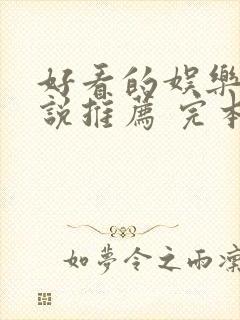 好看的娛樂
說推薦 完本
如夢令之雨凜